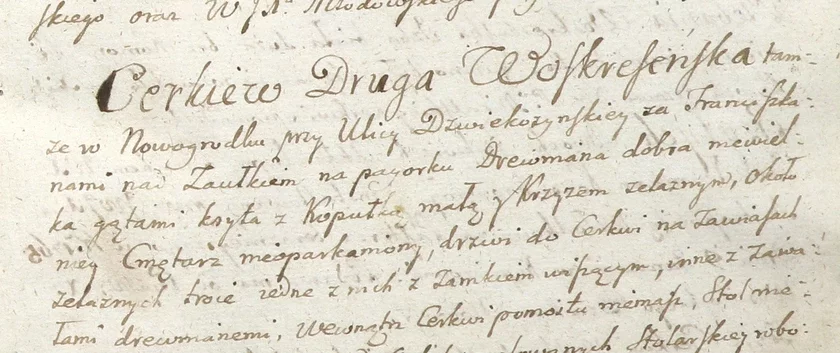 skiego oraz W JX Młodowskiego
Cerkiew Druga Woskreseńska tam-
ze w Nowogrodku przy Ulicy Dzwiekozynskiey za Franciszka-
nami nad Zaułkiem na pagorku Drewniana dobra niewiel-
ka gątami kryta z Kopułką małą y Krzyzem zelaznym, około
niey Cmętarz nieoparkaniony, drzwi do Cerkwi na Zawiasach
zelaznych troie iedne z nich z Zamkiem wiszącym, inne z Zawa-
łami drewnianemi, Wewnątrz Cerkwi pomostu niemasz, Stol nie-
Stolarskiey robo-